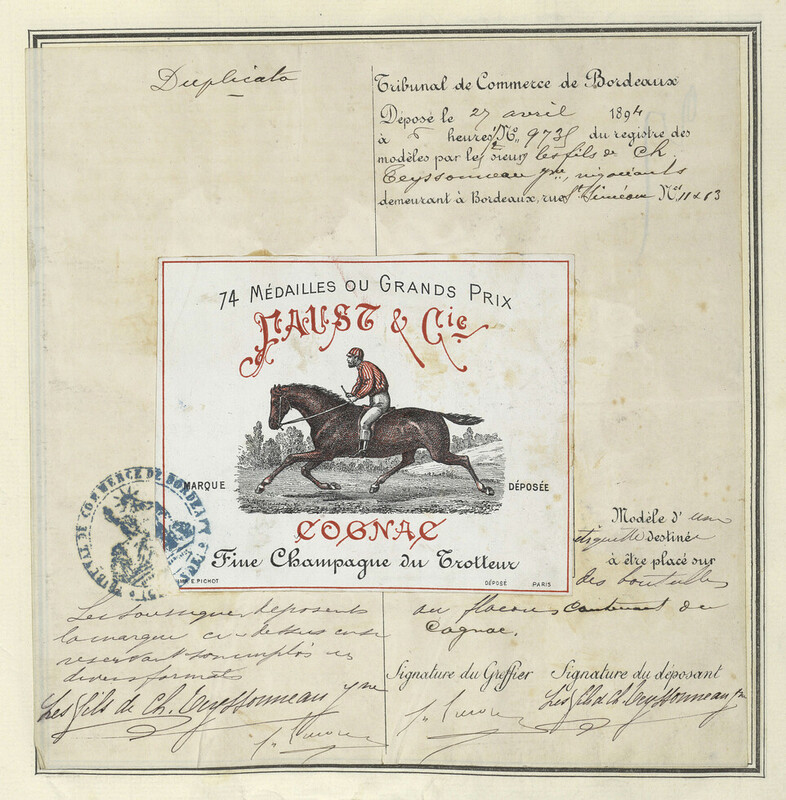 Duplicata
Tribunal de Commerce de Bordeaux
Déposé le 27 avril 1894
à 5 heures Nº 9735 du registre des
modèles par les sieurs les fils de Ch
Teyssonneau jne, négociants
demeurant à Bordeaux, rue St Siméon Nos 11 & 13
74 MÉDAILLES OU GRANDS PRIX
FAUST & Cie
MARQUE DÉPOSÉE
COGNAC
Fine Champagne du Trotteur
E. PICHOT DÉPOSÉ PARIS
TRIBUNAL DE COMMERCE DE BORDEAUX
Modèle d'une
étiquette destinée
à être placé sur
des bouteilles
ou flacons contenant du
Cognac.
Les soussignés déposent
la marque ci-dessus en se
réservant son emploi en
divers formats
Les fils de Ch. Teyssonneau jne
Signature du Greffier Signature du déposant
Les fils de Ch. Teyssonneau jne